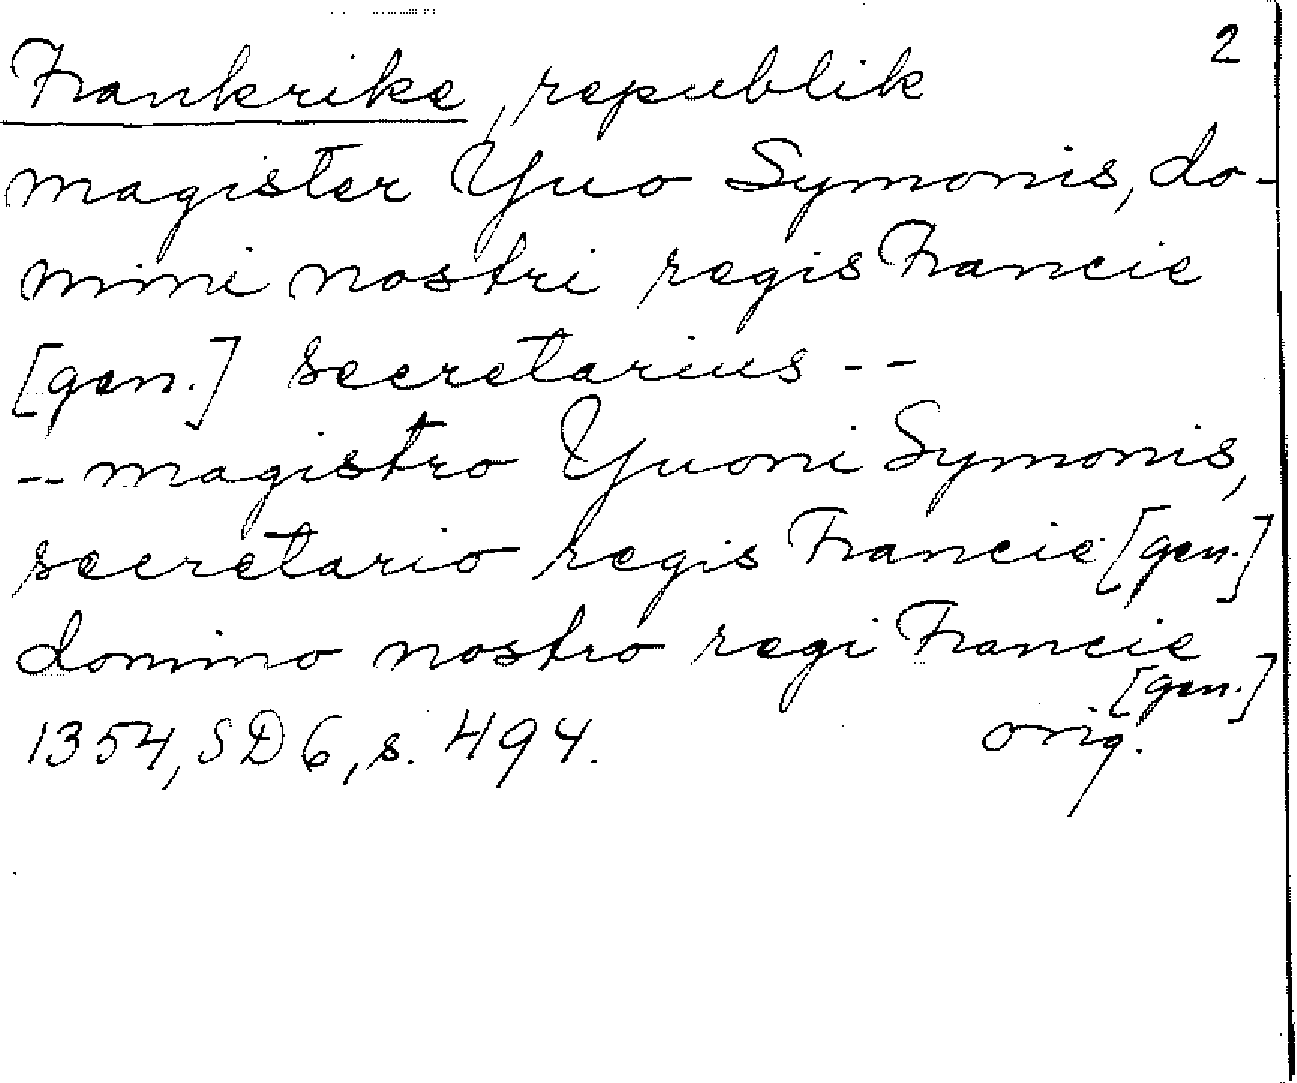 2
Frankrike, republik
magister Yuo Symonis, do-
mini nostri regis Francie
[gen.] secretarius --
-- magistro Yuoni Symonis,
secretario regis Francie [gen.]
domino nostro regi Francie
[gen.]
1354, SD 6, s. 494. orig.